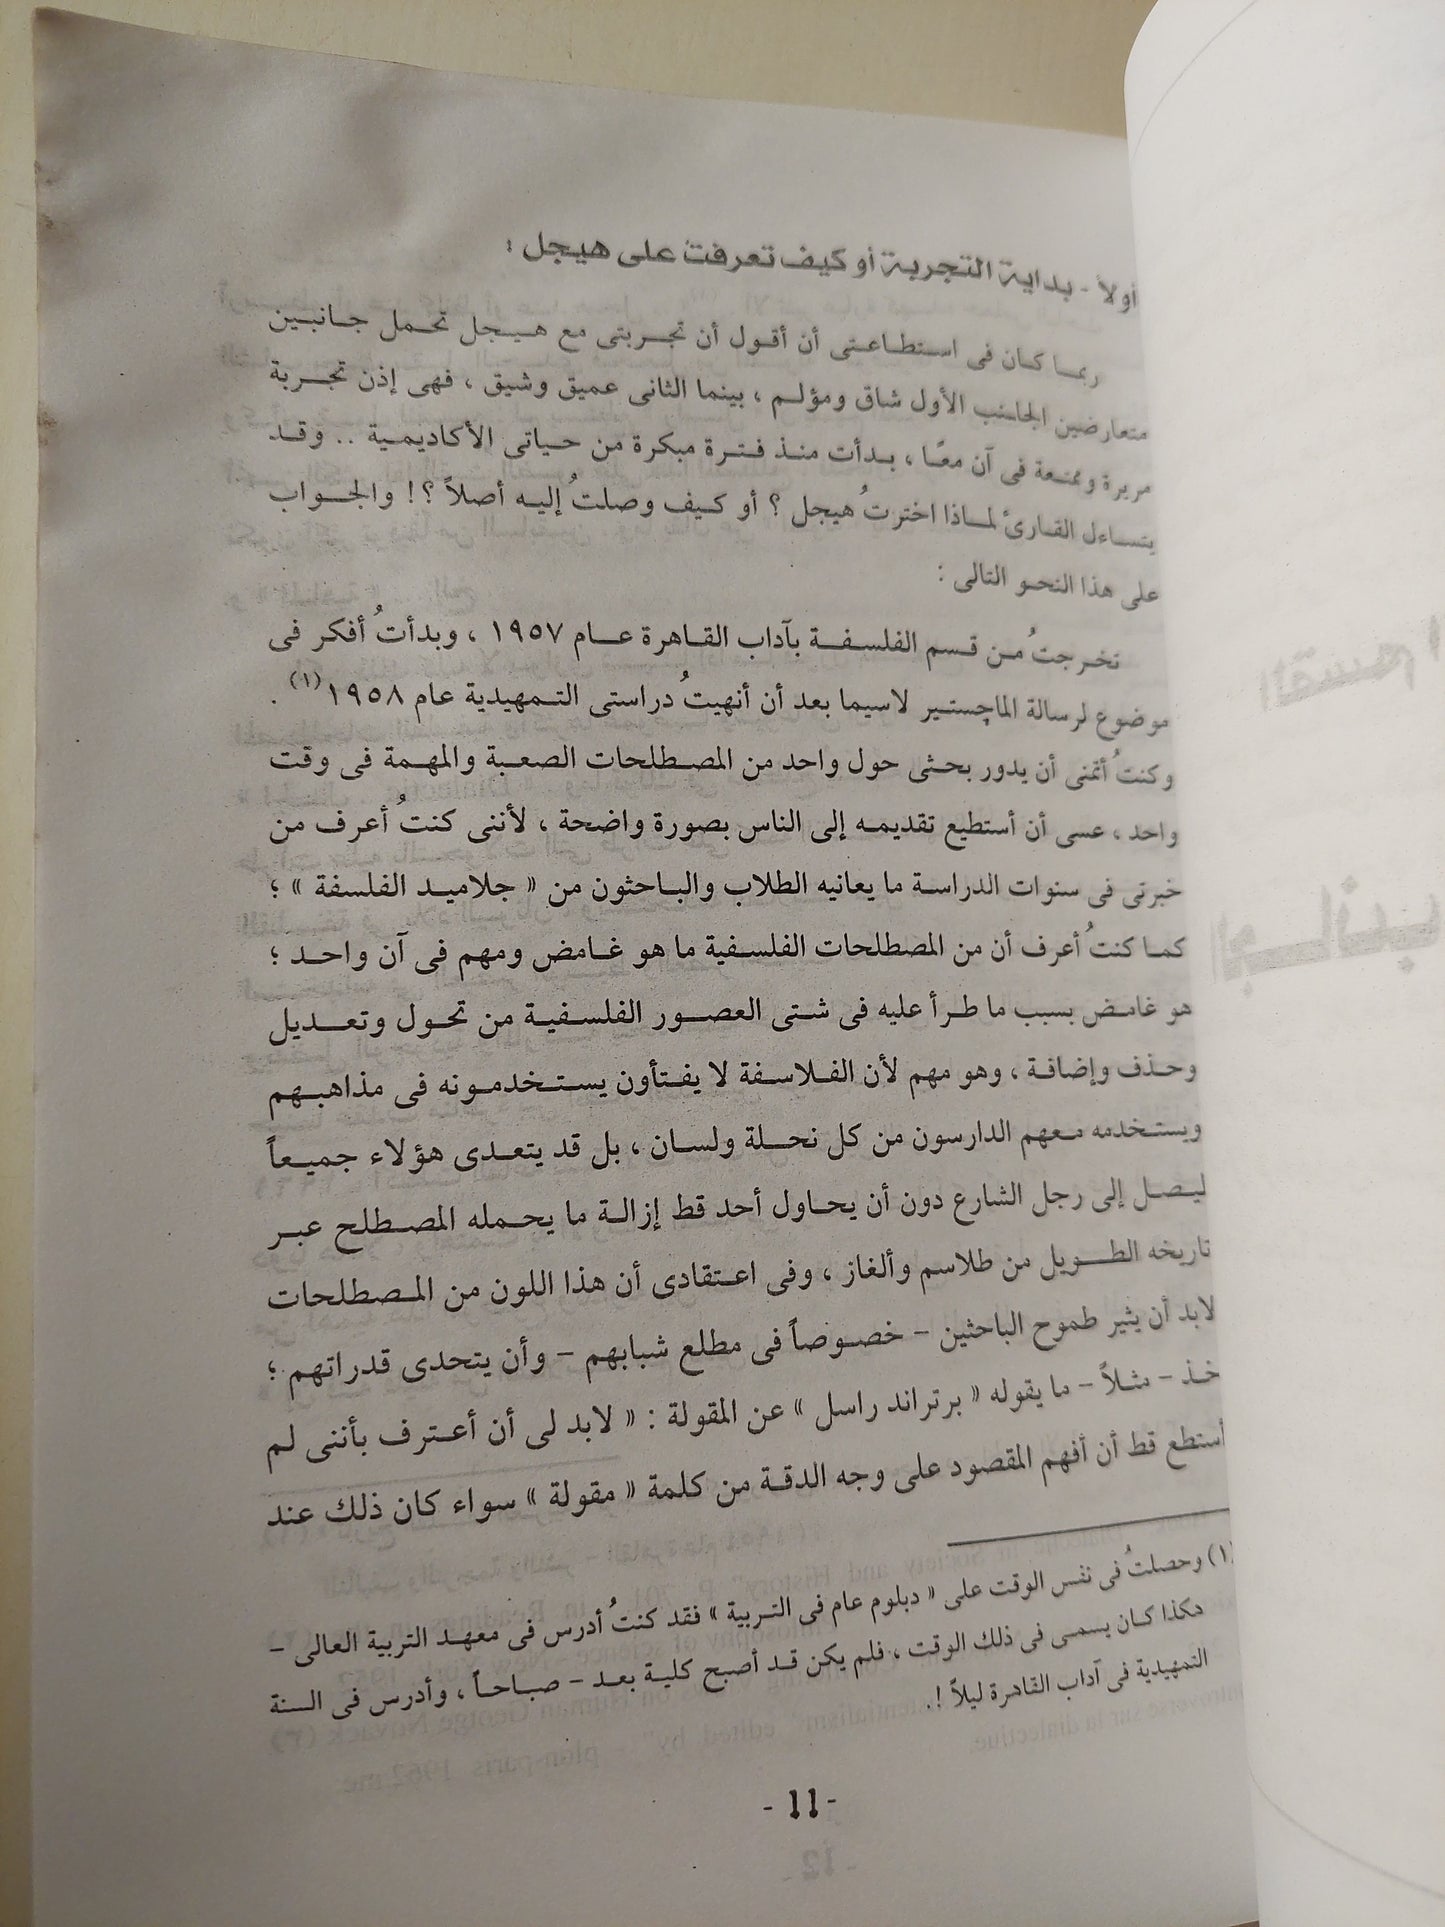 أولاً - بداية التجربة أو كيف تعرفتُ على هيجل :
ربما كان فى استطاعتى أن أقول أن تجربتى مع هيجل تحمل جانبين
متعارضين الجانب الأول شاق ومؤلم ، بينما الثانى عميق وشيق ، فهى إذن تجربة
مريرة وممتعة فى آن معًا ، بدأت منذ فترة مبكرة من حياتى الأكاديمية .. وقد
يتساءل القارئ لماذا اخترتُ هيجل ؟ أو كيف وصلتُ إليه أصلاً ؟! والجواب
على هذا النحو التالى :
تخرجتُ من قسم الفلسفة بآداب القاهرة عام ١٩٥٧ ، وبدأتُ أفكر فى
موضوع لرسالة الماچستير لاسيما بعد أن أنهيتُ دراستى التمهيدية عام ١٩٥٨ (١) .
وكنتُ أتمنى أن يدور بحثى حول واحد من المصطلحات الصعبة والمهمة فى وقت
واحد ، عسى أن أستطيع تقديمه إلى الناس بصورة واضحة ، لأننى كنتُ أعرف من
خبرتى فى سنوات الدراسة ما يعانيه الطلاب والباحثون من « جلاميد الفلسفة » ؛
كما كنتُ أعرف أن من المصطلحات الفلسفية ما هو غامض ومهم فى آن واحد ؛
هو غامض بسبب ما طرأ عليه فى شتى العصور الفلسفية من تحول وتعديل
وحذف وإضافة ، وهو مهم لأن الفلاسفة لا يفتأون يستخدمونه فى مذاهبهم
ويستخدمه معهم الدارسون من كل نحلة ولسان ، بل قد يتعدى هؤلاء جميعاً
ليصل إلى رجل الشارع دون أن يحاول أحد قط إزالة ما يحمله المصطلح عبر
تاريخه الطويل من طلاسم وألغاز ، وفى اعتقادى أن هذا اللون من المصطلحات
لابد أن يثير طموح الباحثين – خصوصاً فى مطلع شبابهم – وأن يتحدى قدراتهم ؛
خذ – مثلاً – ما يقوله « برتراند راسل » عن المقولة : « لابد لى أن أعترف بأننى لم
أستطع قط أن أفهم المقصود على وجه الدقة من كلمة « مقولة » سواء كان ذلك عند
(١) وحصلتُ فى نفس الوقت على « دبلوم عام فى التربية » فقد كنتُ أدرس فى معهد التربية العالى –
هكذا كان يسمى فى ذلك الوقت ، فلم يكن قد أصبح كلية بعد – صباحاً ، وأدرس فى السنة
التمهيدية فى آداب القاهرة ليلاً !.
- 11 -